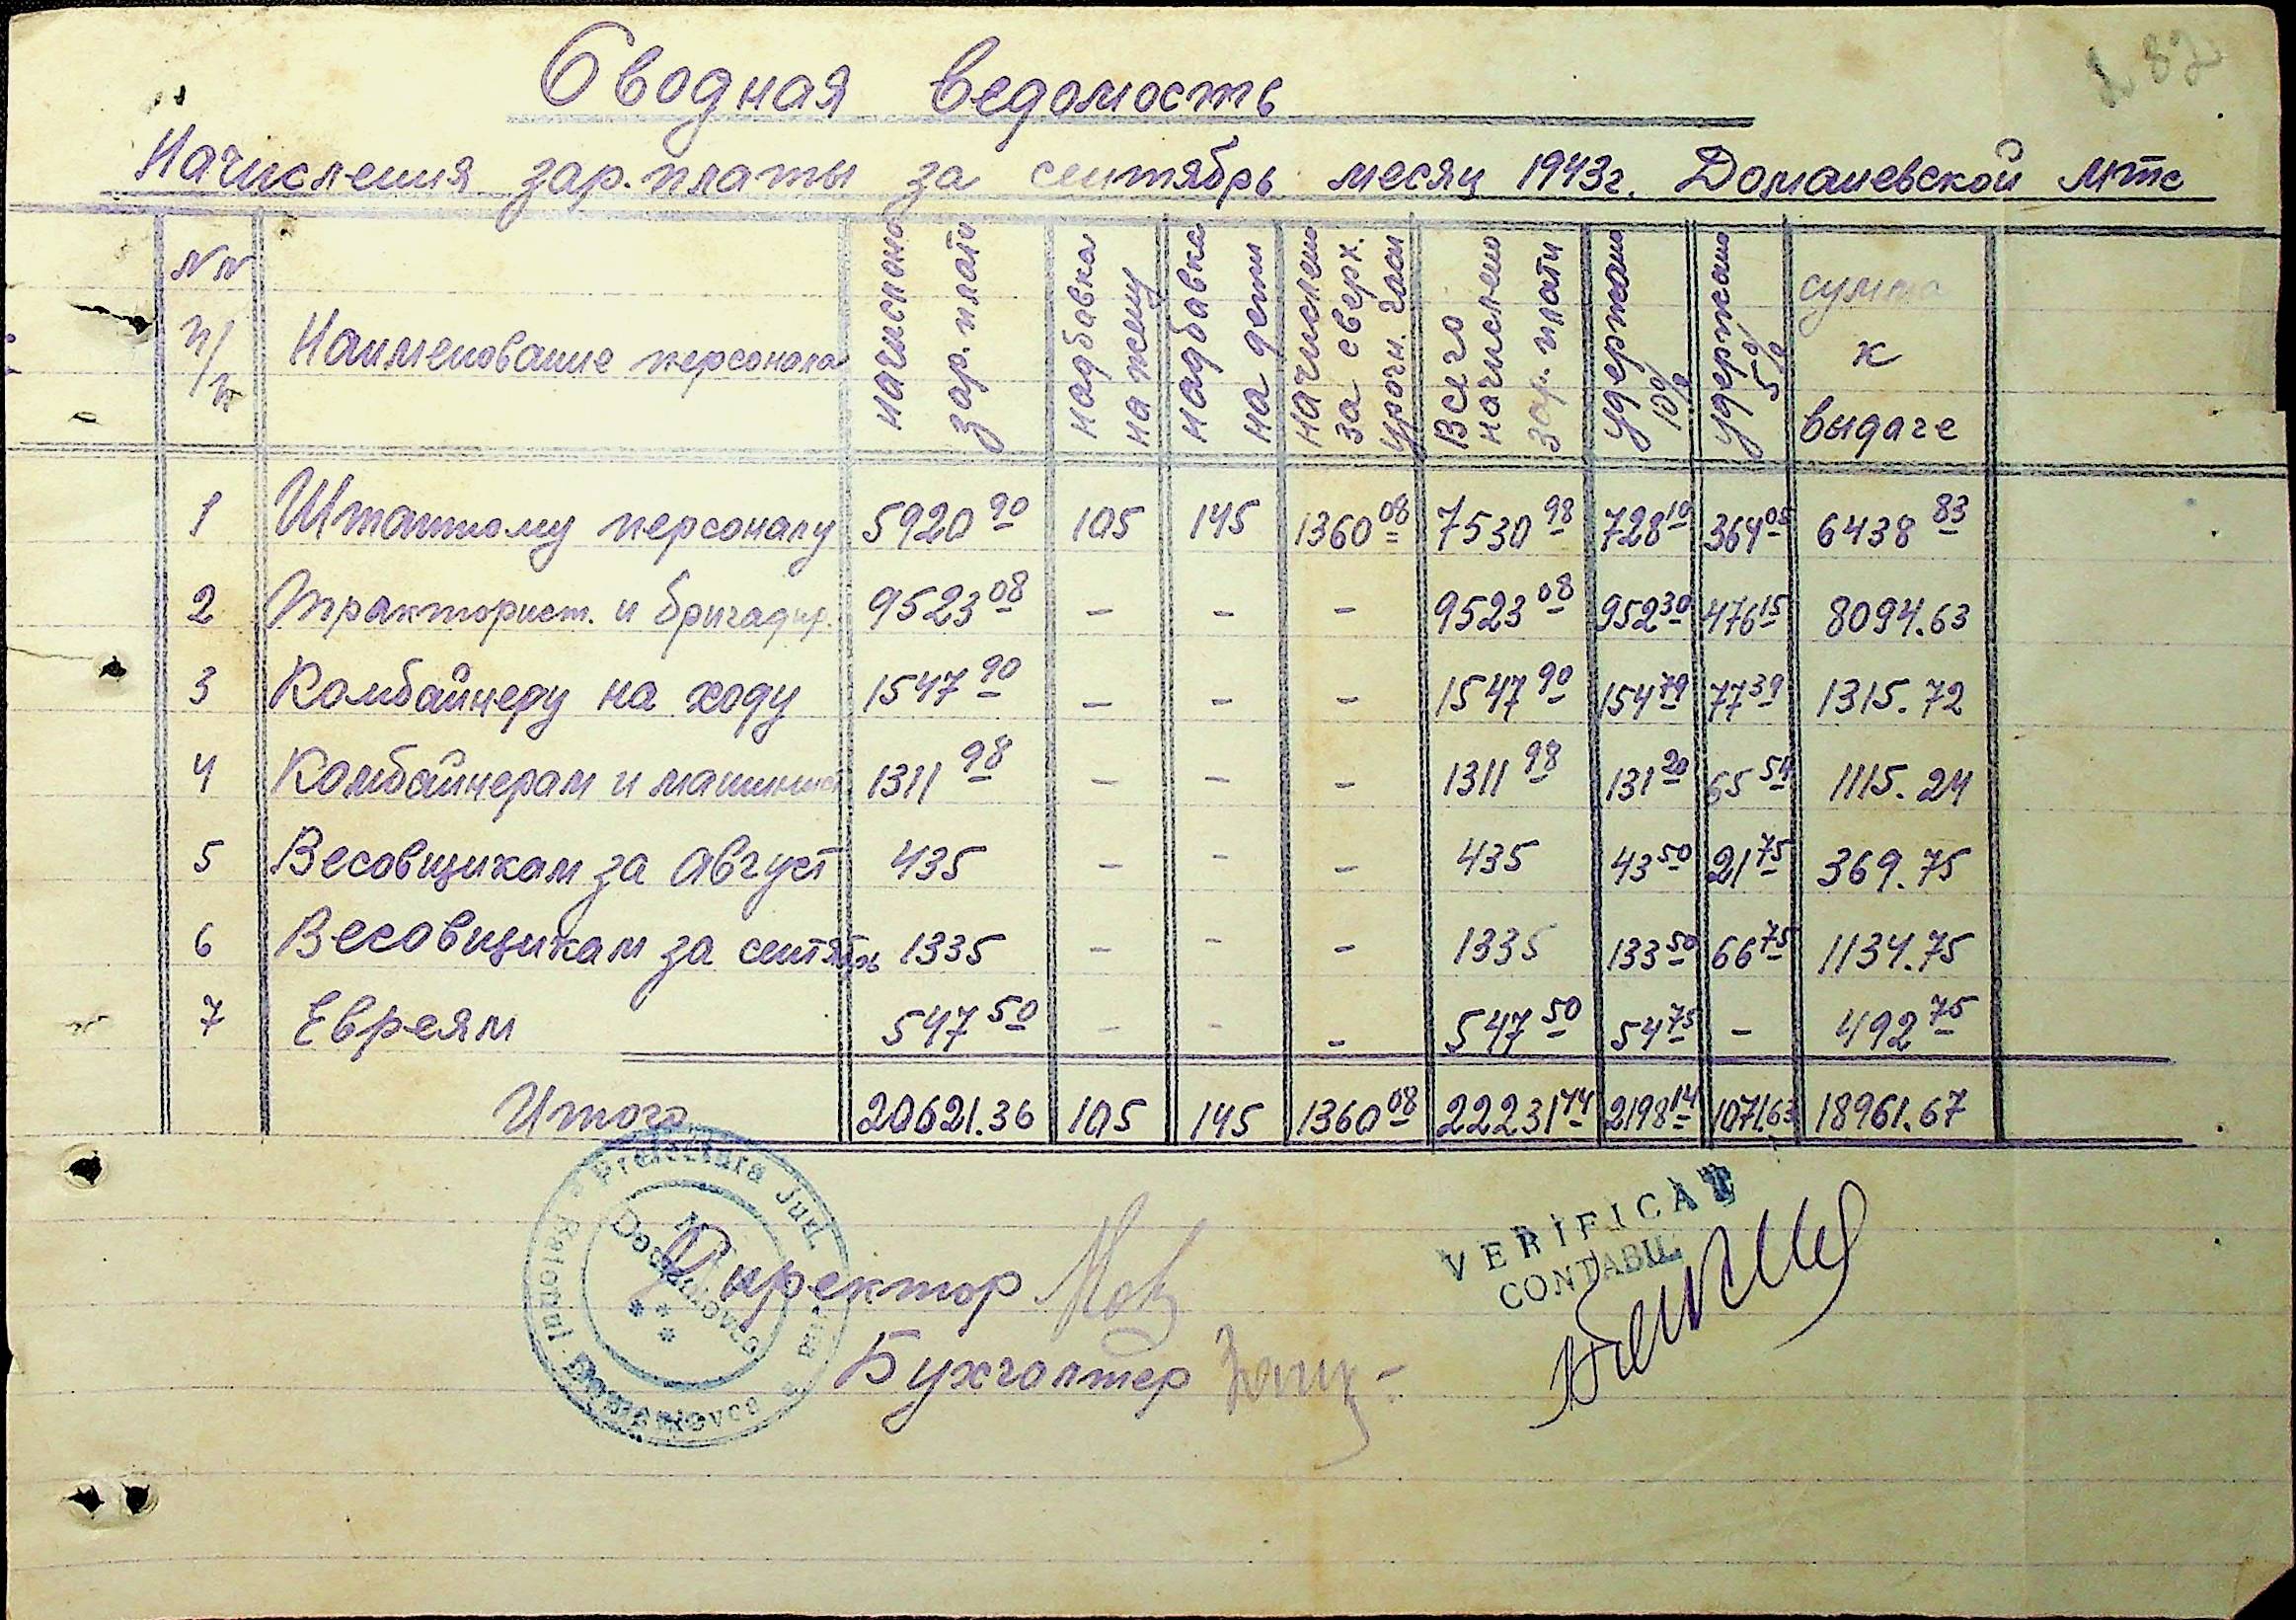 282
Сводная ведомость
Начисления зар. платы за сентябрь месяц 1943г. Доманевской мтс
NN п/п | Наименование персонала | начислено зар. плати | надбавка на жену | надбавка на дети | начислено за сверх. урочн. часи | Всего начислено зар. плати | удержано 10% | удержано 5% | сумма к выдаче
1 | Штатному персоналу | 5920 90 | 105 | 145 | 1360 08 | 7530 98 | 728 10 | 364 05 | 6438 83
2 | Тракторист. и бригадир. | 9523 08 | – | – | – | 9523 08 | 952 30 | 476 15 | 8094.63
3 | Комбайнеру на ходу | 1547 90 | – | – | – | 1547 90 | 154 79 | 77 39 | 1315.72
4 | Комбайнерам и машинист | 1311 98 | – | – | – | 1311 98 | 131 20 | 65 54 | 1115.24
5 | Весовщикам за август | 435 | – | – | – | 435 | 43 50 | 21 75 | 369.75
6 | Весовщикам за сентябрь | 1335 | – | – | – | 1335 | 133 50 | 66 75 | 1134.75
7 | Евреям | 547 50 | – | – | – | 547 50 | 54 75 | – | 492 75
Итого | 20621.36 | 105 | 145 | 1360 08 | 22231 44 | 2198 14 | 1071.63 | 18961.67
Prefectura Jud.
Raionul Domaniovca
Domaniovca
Директор
Бухгалтер
VERIFICAT
CONTABIL